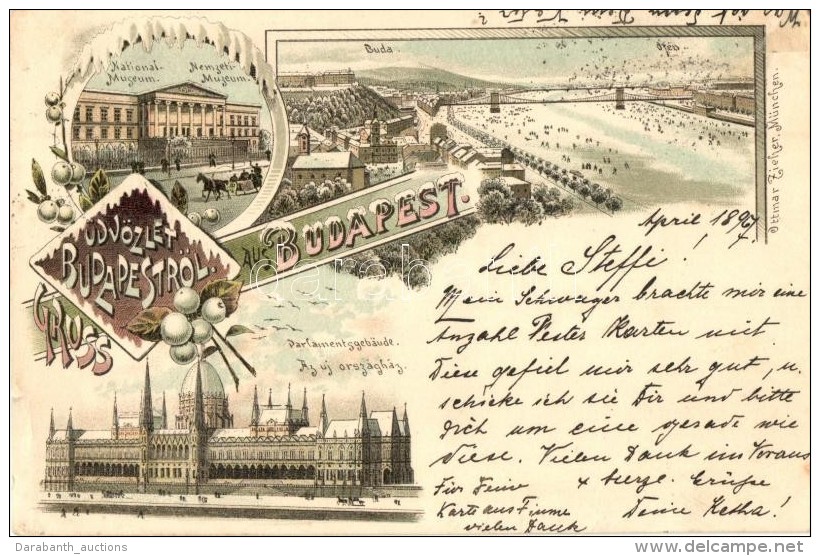 Was ist Deine
National-
Museum.
Nemzeti-
Múzeum.
Buda.
Ofen.
Ottmar Zieher, München.
ÜDVÖZLET
BUDAPESTRŐL.
GRUSS
AUS BUDAPEST.
Parlamentsgebäude.
Az új országház.
April 1897.
Liebe Steffi!
Mein Schwager brachte mir eine
Anzahl Pester Karten mit.
Diese gefiel mir sehr gut, u.
schicke ich sie Dir und bitte
Dich um eine gerade wie
diese. Vielen Dank im Voraus
Für Deine
Karte aus Fiume
vielen Dank
& herzl. Grüße
Deine Ketha!
darabanth
Darabanth_auctions
http://www.delcampe.net